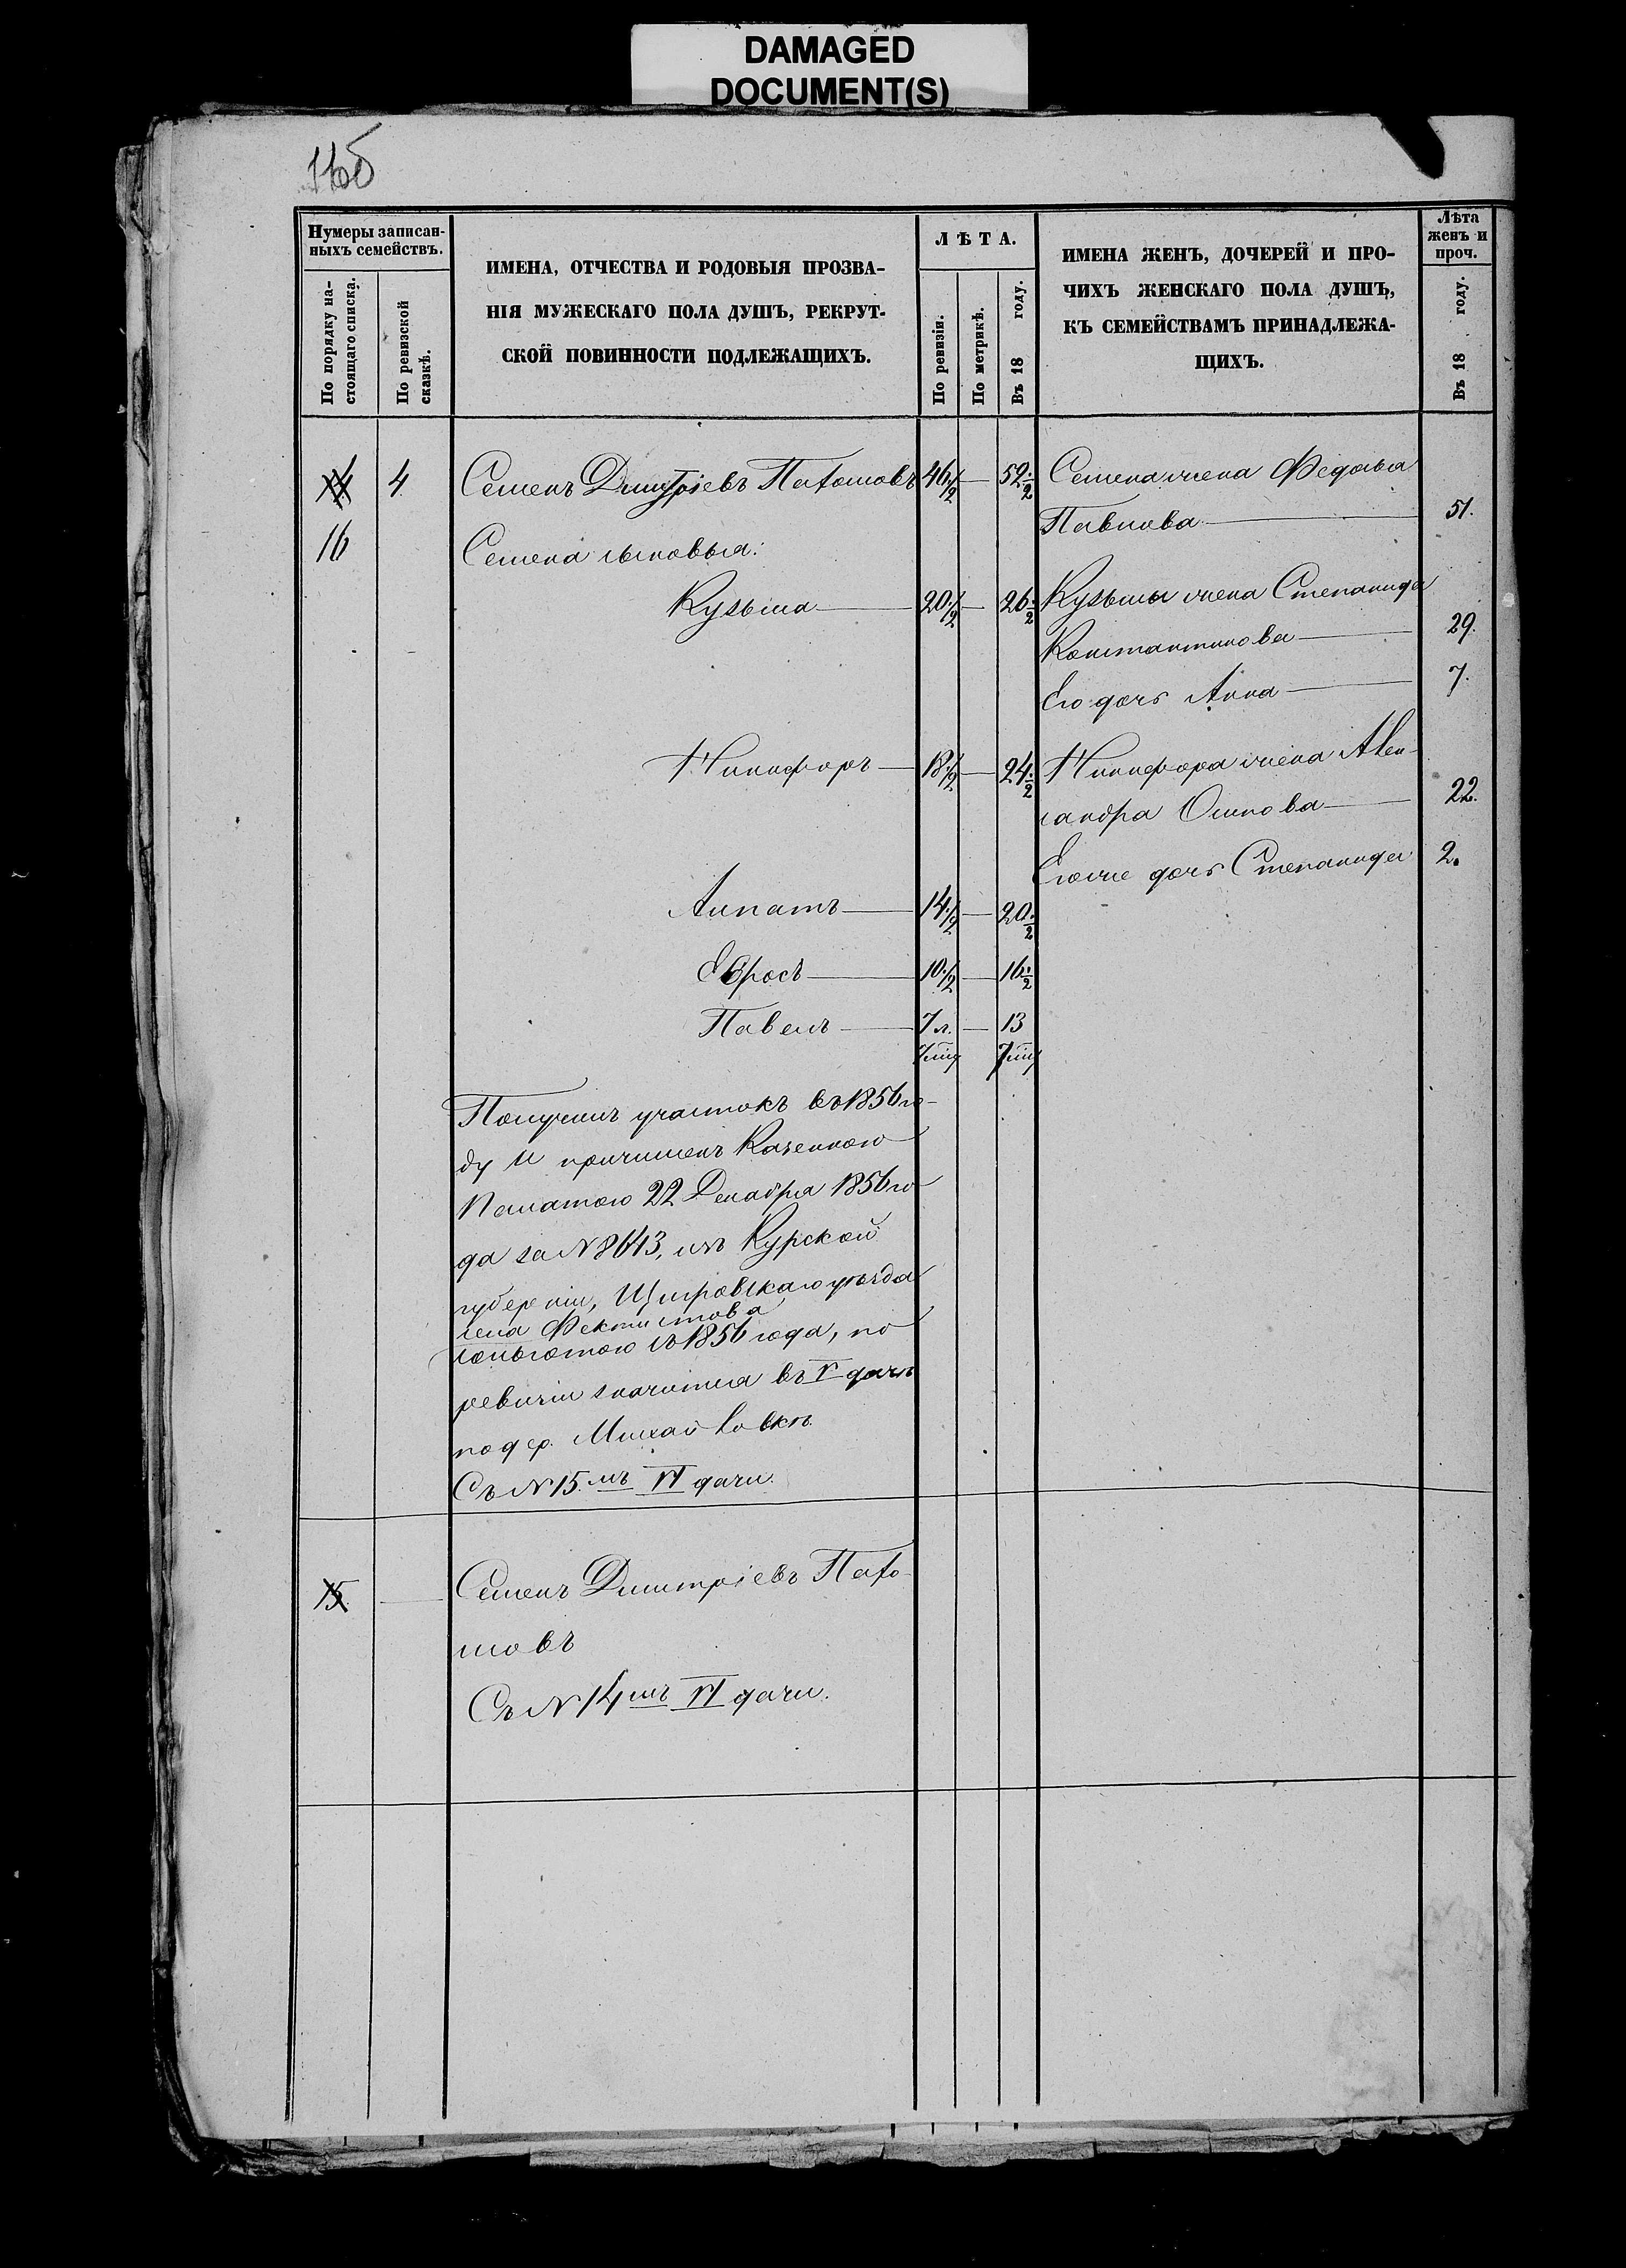 DAMAGED
DOCUMENT(S)
Нумеры записан-
ныхъ семействъ.
По порядку на-
стоящаго списка.
По ревизской
сказкѣ.
ИМЕНА, ОТЧЕСТВА И РОДОВЫЯ ПРОЗВА-
НІЯ МУЖЕСКАГО ПОЛА ДУШЪ, РЕКРУТ-
СКОЙ ПОВИННОСТИ ПОДЛЕЖАЩИХЪ.
ЛѢТА.
По ревизіи.
По метрикѣ.
Въ 18 году.
ИМЕНА ЖЕНЪ, ДОЧЕРЕЙ И ПРО-
ЧИХЪ ЖЕНСКАГО ПОЛА ДУШЪ,
КЪ СЕМЕЙСТВАМЪ ПРИНАДЛЕЖА-
ЩИХЪ.
Лѣта
женъ и
проч.
Въ 18 году.
4 Семенъ Димтріевъ Пахомовъ 46 1/2 — 52 1/2 Семена жена Федосья
Павлова 51.
16 Семена сыновья:
Кузьма 20 1/2 — 26 1/2 Кузьмы жена Степанида
Константинова 29.
Его дочь Анна 7.
Никифоръ 18 1/2 — 24 1/2 Никифора жена Алек-
сандра Осипова 22.
Егоже дочь Степанида 2.
Антипъ 14 1/2 — 20 1/2
10 1/2 — 16 1/2
Павелъ 7 л. — 13
Получилъ участокъ въ 1856 го-
ду и причисленъ Казенною
Палатою 22 Декабря 1856 го-
да за N 8643, изъ Курской
губерніи, Щигровскаго уѣзда
села Фектистова
сольготою съ 1856 года, по
ревизіи значится въ V дачѣ
под ср. Михайловкѣ.
Съ N 15.мъ VI дачи.
15. Семенъ Димитріевъ Пахо-
мовъ
Съ N 14мъ VI дачи.